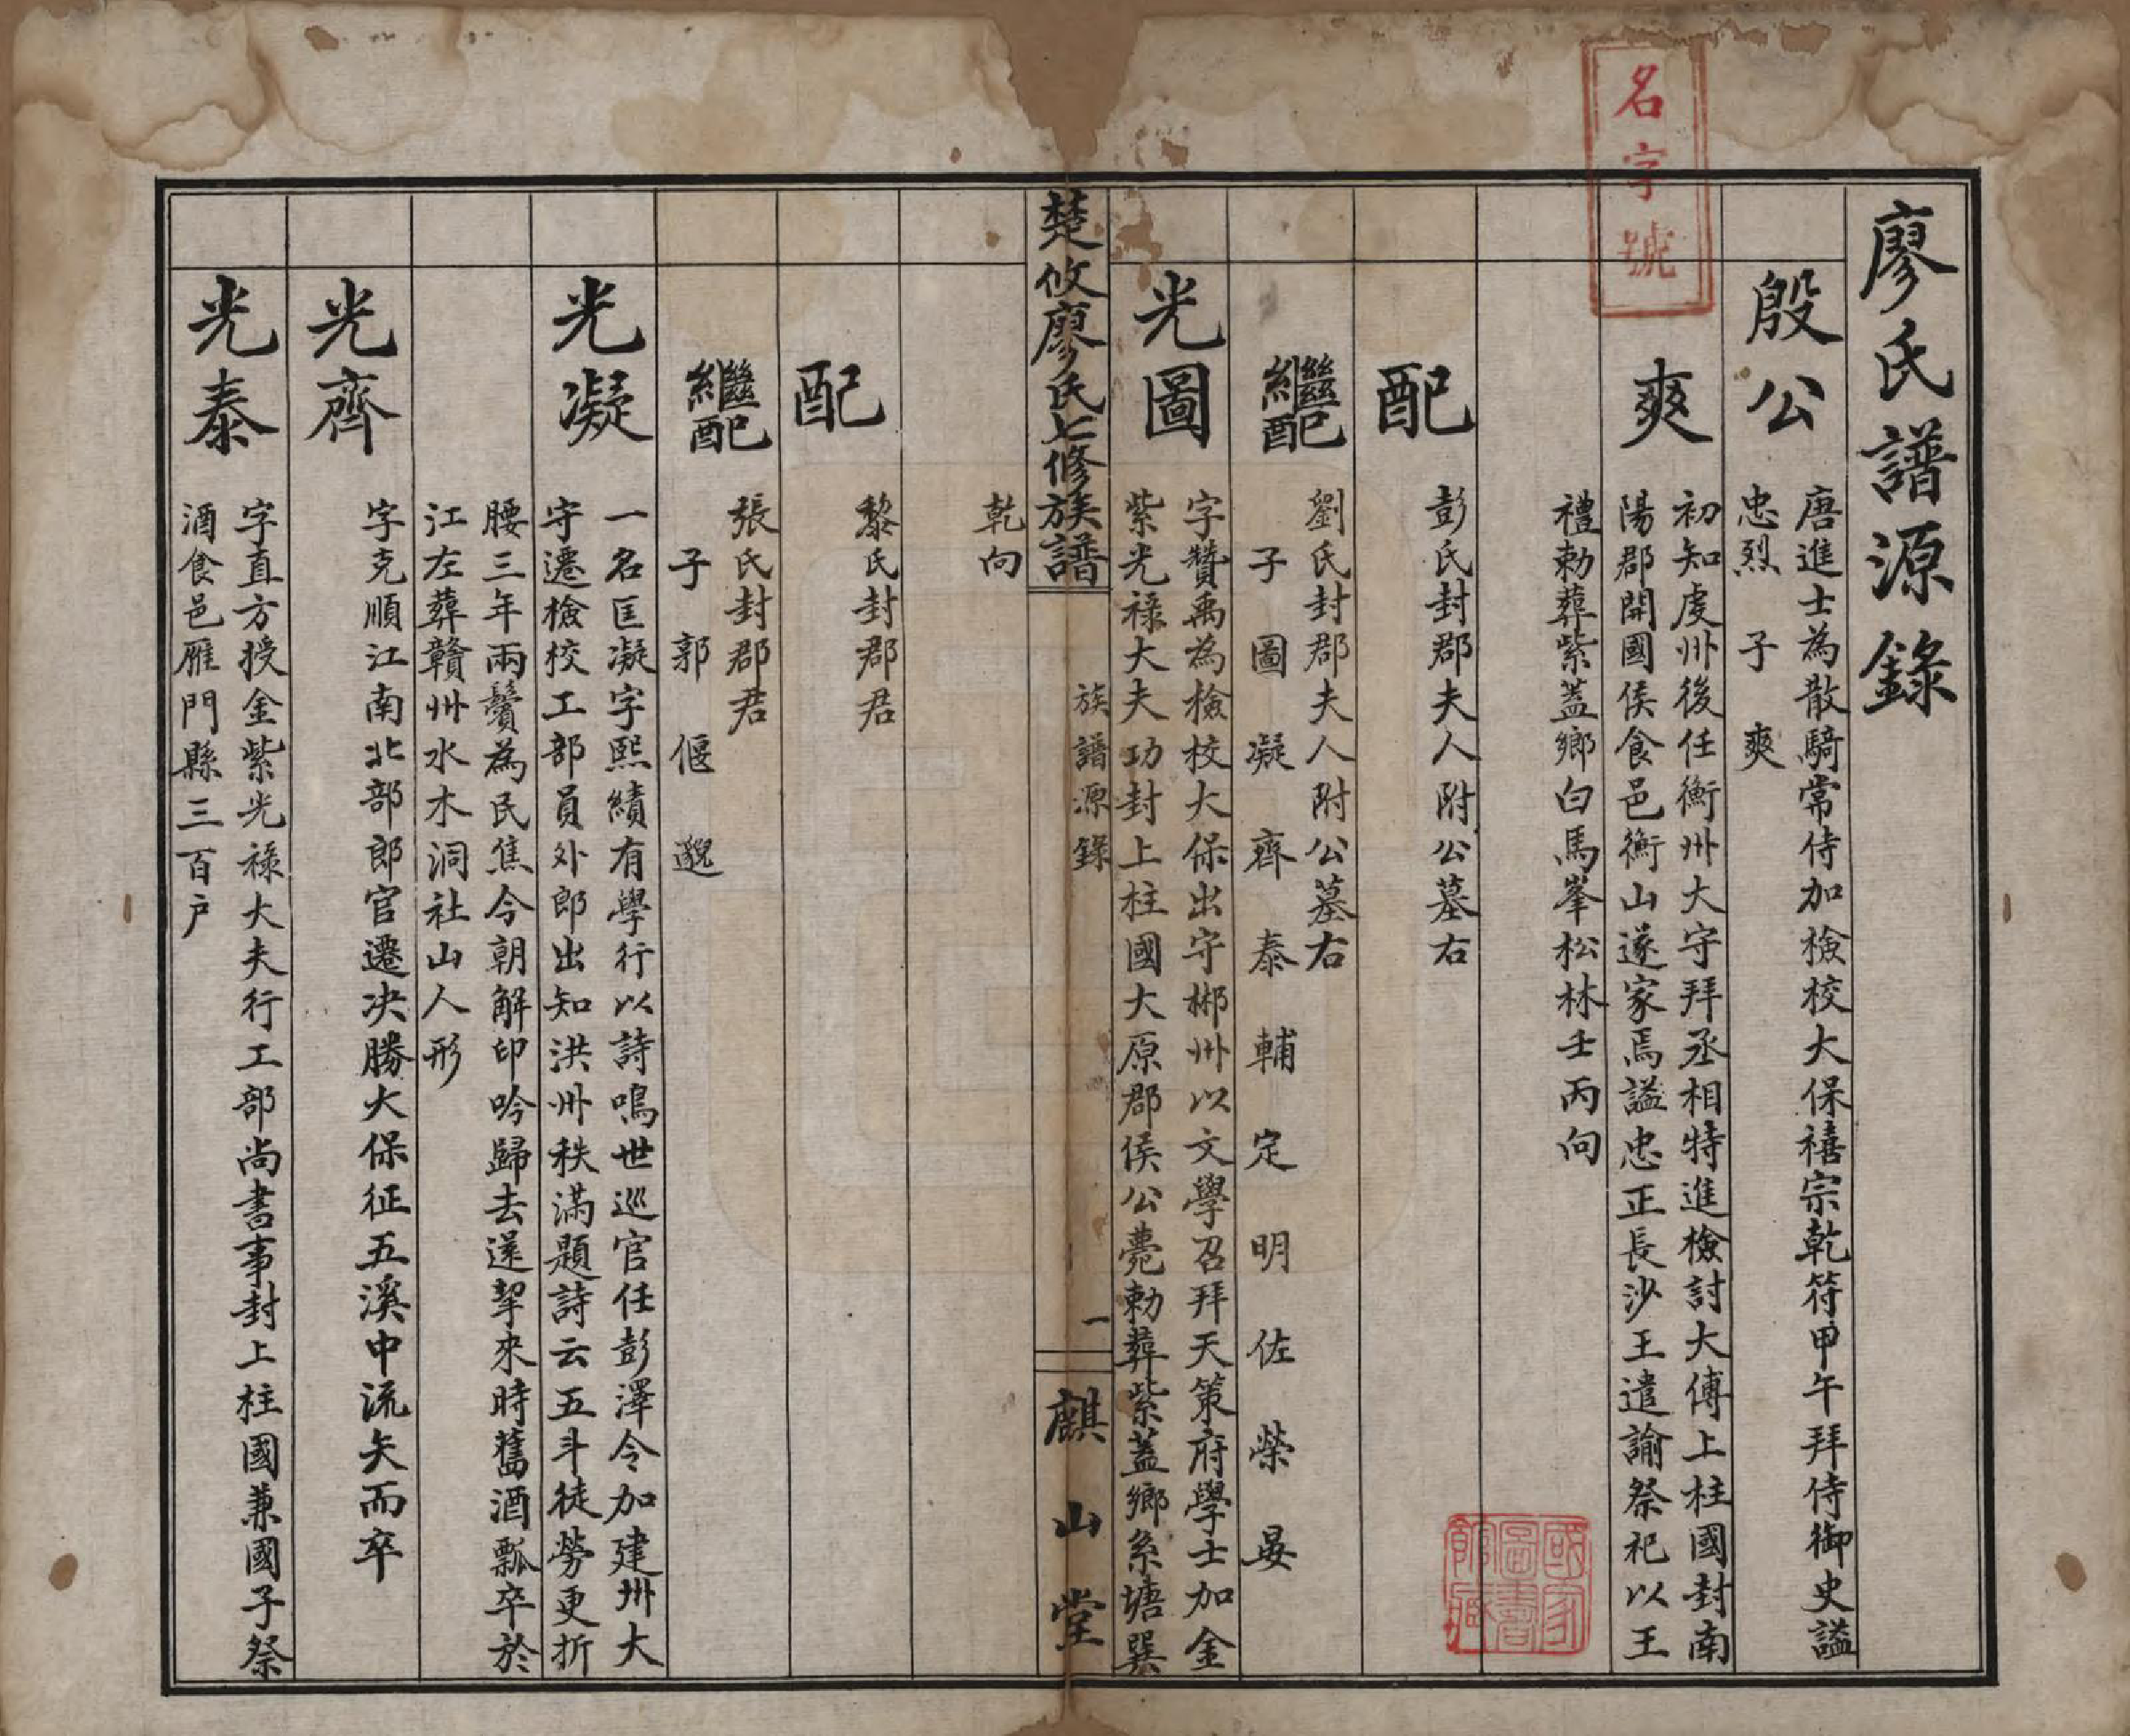 廖氏譜源錄
名字號
殷公
唐進士為散騎常侍加檢校大保禧宗乾符甲午拜侍御史謚
忠烈　子　爽
爽
初知虔州後任衡州大守拜丞相特進檢討大傅上柱國封南
陽郡開國侯食邑衡山遂家焉謚忠正長沙王遣諭祭祀以王
禮勅葬紫蓋鄉白馬峯松林壬丙向
配
彭氏封郡夫人附公墓右
繼配
劉氏封郡夫人附公墓右
子　圖　凝　齊　泰　輔　定　明　佐　榮　晏
光圖
字贊禹為檢校大保出守郴州以文學召拜天策府學士加金
紫光祿大夫功封上柱國大原郡侯公薨勅葬紫蓋鄉系塘巽
楚攸廖氏七修族譜
族譜源錄
一
麒山堂
乾向
配
黎氏封郡君
繼配
張氏封郡君
子　郭　偃　邈
光凝
一名匡凝字熙績有學行以詩鳴世巡官任彭澤令加建州大
守遷檢校工部員外郎出知洪州秩滿題詩云五斗徒勞更折
腰三年兩鬢為民焦今朝解印吟歸去遂挈來時舊酒瓢卒於
江左葬贛州水木洞社山人形
光齊
字克順江南北部郎官遷决勝大保征五溪中流矢而卒
光泰
字直方授金紫光祿大夫行工部尚書事封上柱國兼國子祭
酒食邑雁門縣三百户
國家
圖書
館藏